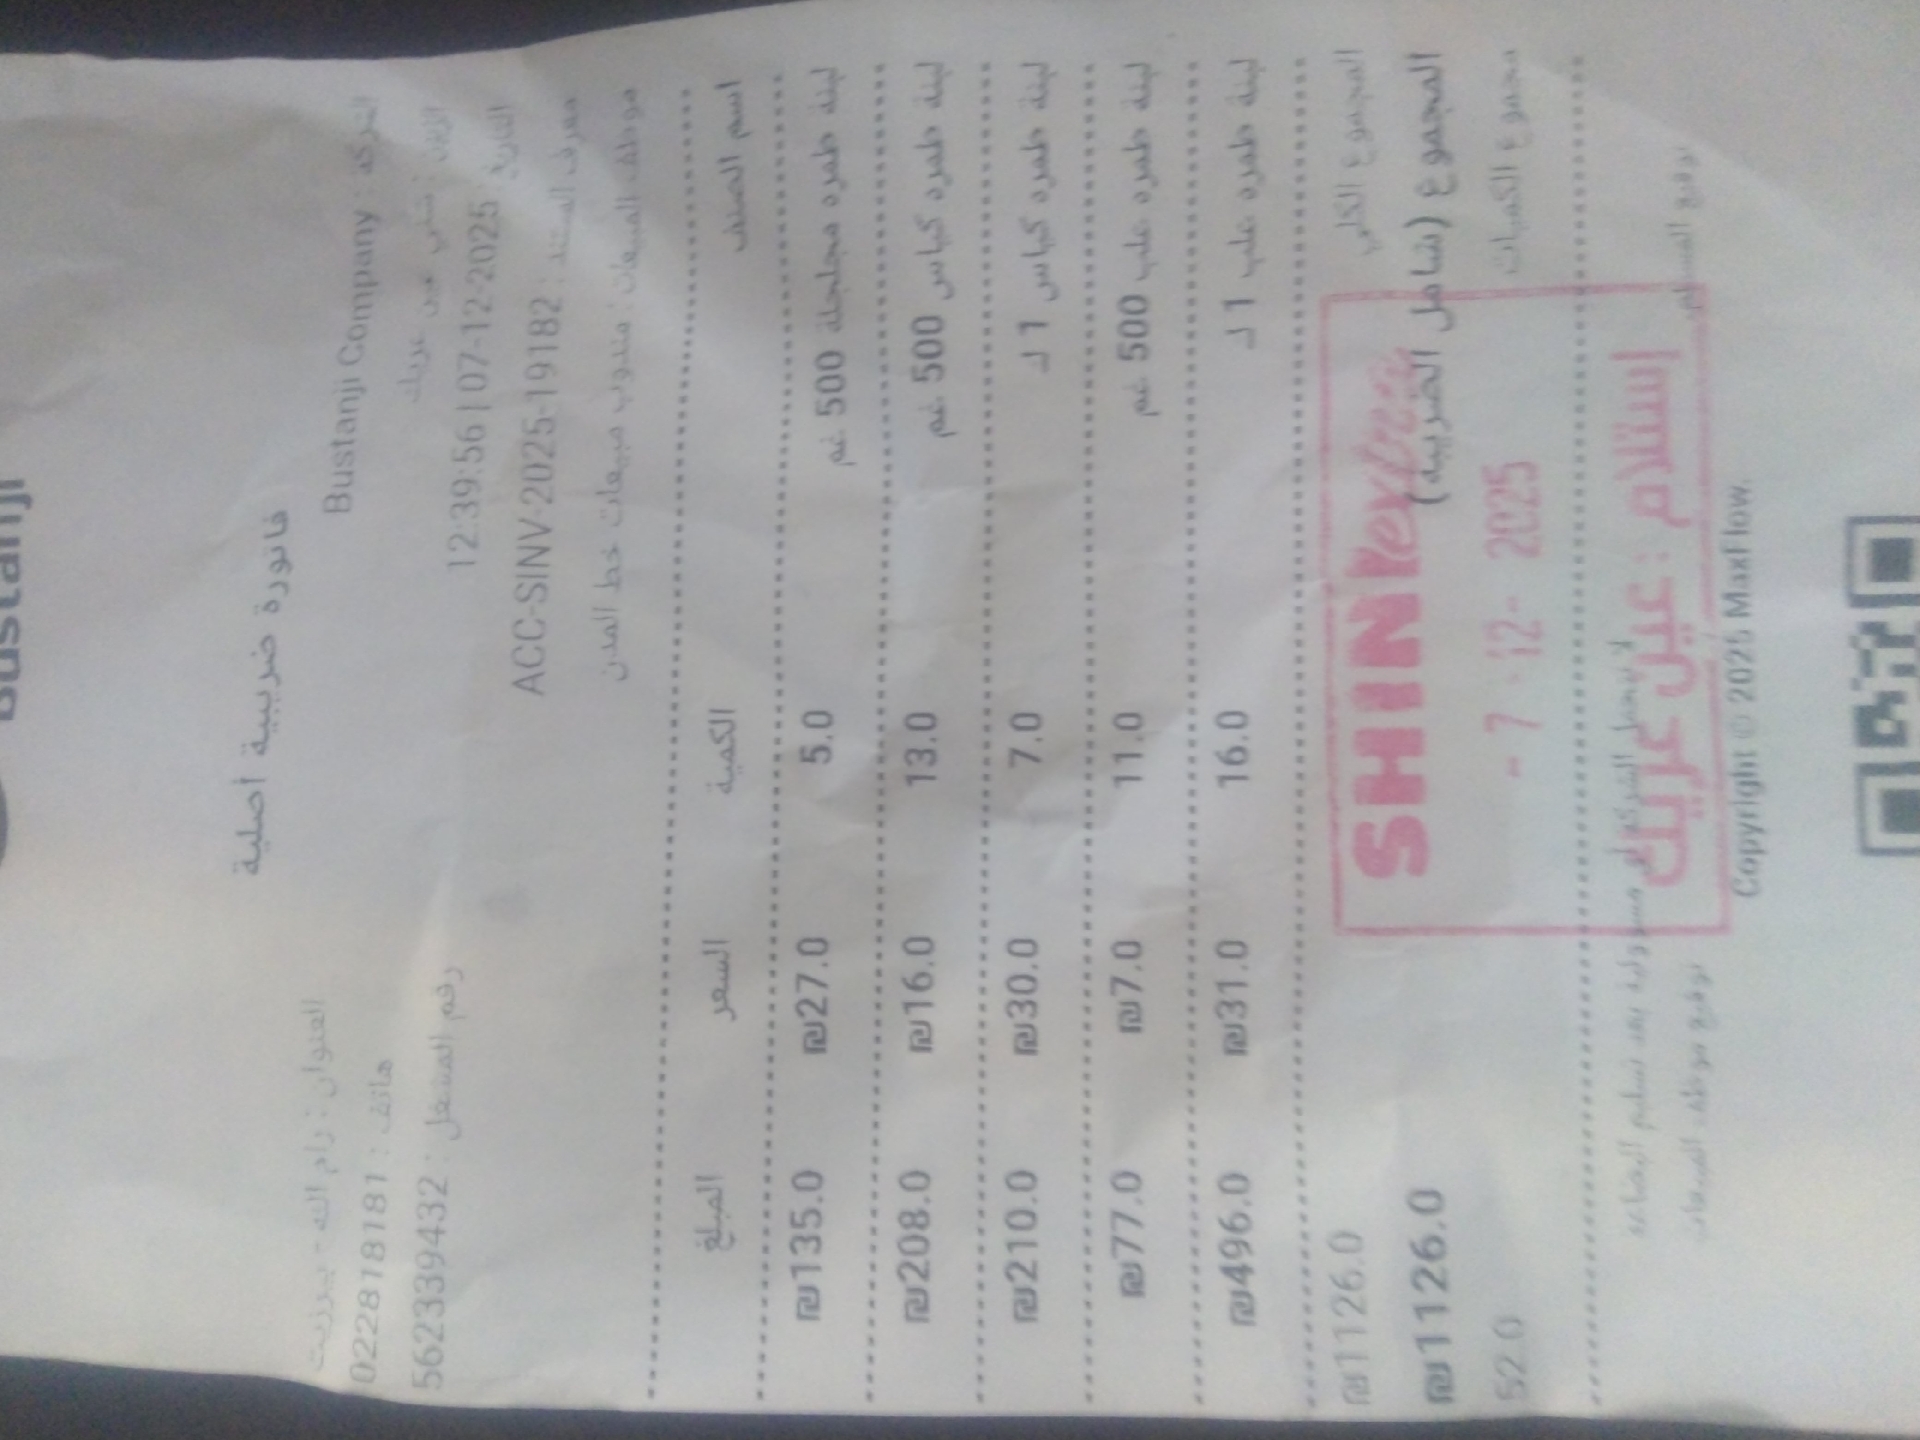 Bustanji
فاتورة ضريبية أصلية
الشركة : Bustanji Company
العنوان : رام الله - بيرزيت
هاتف : 022818181
الزبون : شني عين عريك
رقم المشتغل : 562339432
التاريخ : 07-12-2025 | 12:39:56
معرف المستند : ACC-SINV-2025-19182
موظف المبيعات : مندوب مبيعات خط المدن
اسم الصنف الكمية السعر المبلغ
لبنة طمره مجلجلة 500 غم 5.0 ₪27.0 ₪135.0
لبنة طمره كباس 500 غم 13.0 ₪16.0 ₪208.0
لبنة طمره كباس 1 ك 7.0 ₪30.0 ₪210.0
لبنة طمره علب 500 غم 11.0 ₪7.0 ₪77.0
لبنة طمره علب 1 ك 16.0 ₪31.0 ₪496.0
المجموع الكلي ₪1126.0
المجموع (شامل الضريبة) ₪1126.0
مجموع الكميات 52.0
SHINI extra
- 7 -12- 2025
إستلام : عين عريك
لا تتحمل الشركة أي مسؤولية بعد تسليم البضاعة
توقيع المستلم
توقيع موظف المبيعات
Copyright © 2025 Maxflow.